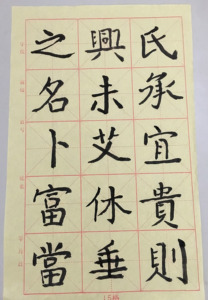 氏承宜貴則
興未艾休垂
之名卜富當